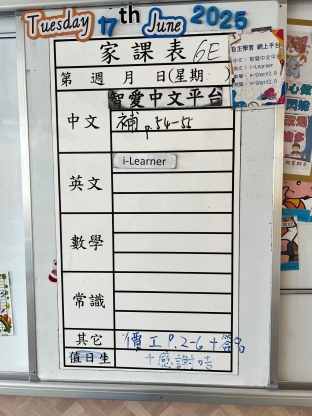 Tuesday 17th June 2025
家課表 6E
第 週 月 日(星期 )
自主學習 網上平台
中文：智愛中文平台
英文：i-Learner
智愛中文平台
中文 補 p.54-55
i-Learner
英文
數學
常識
其它 價工 P.2-6+簽名
值日生 +感謝咭